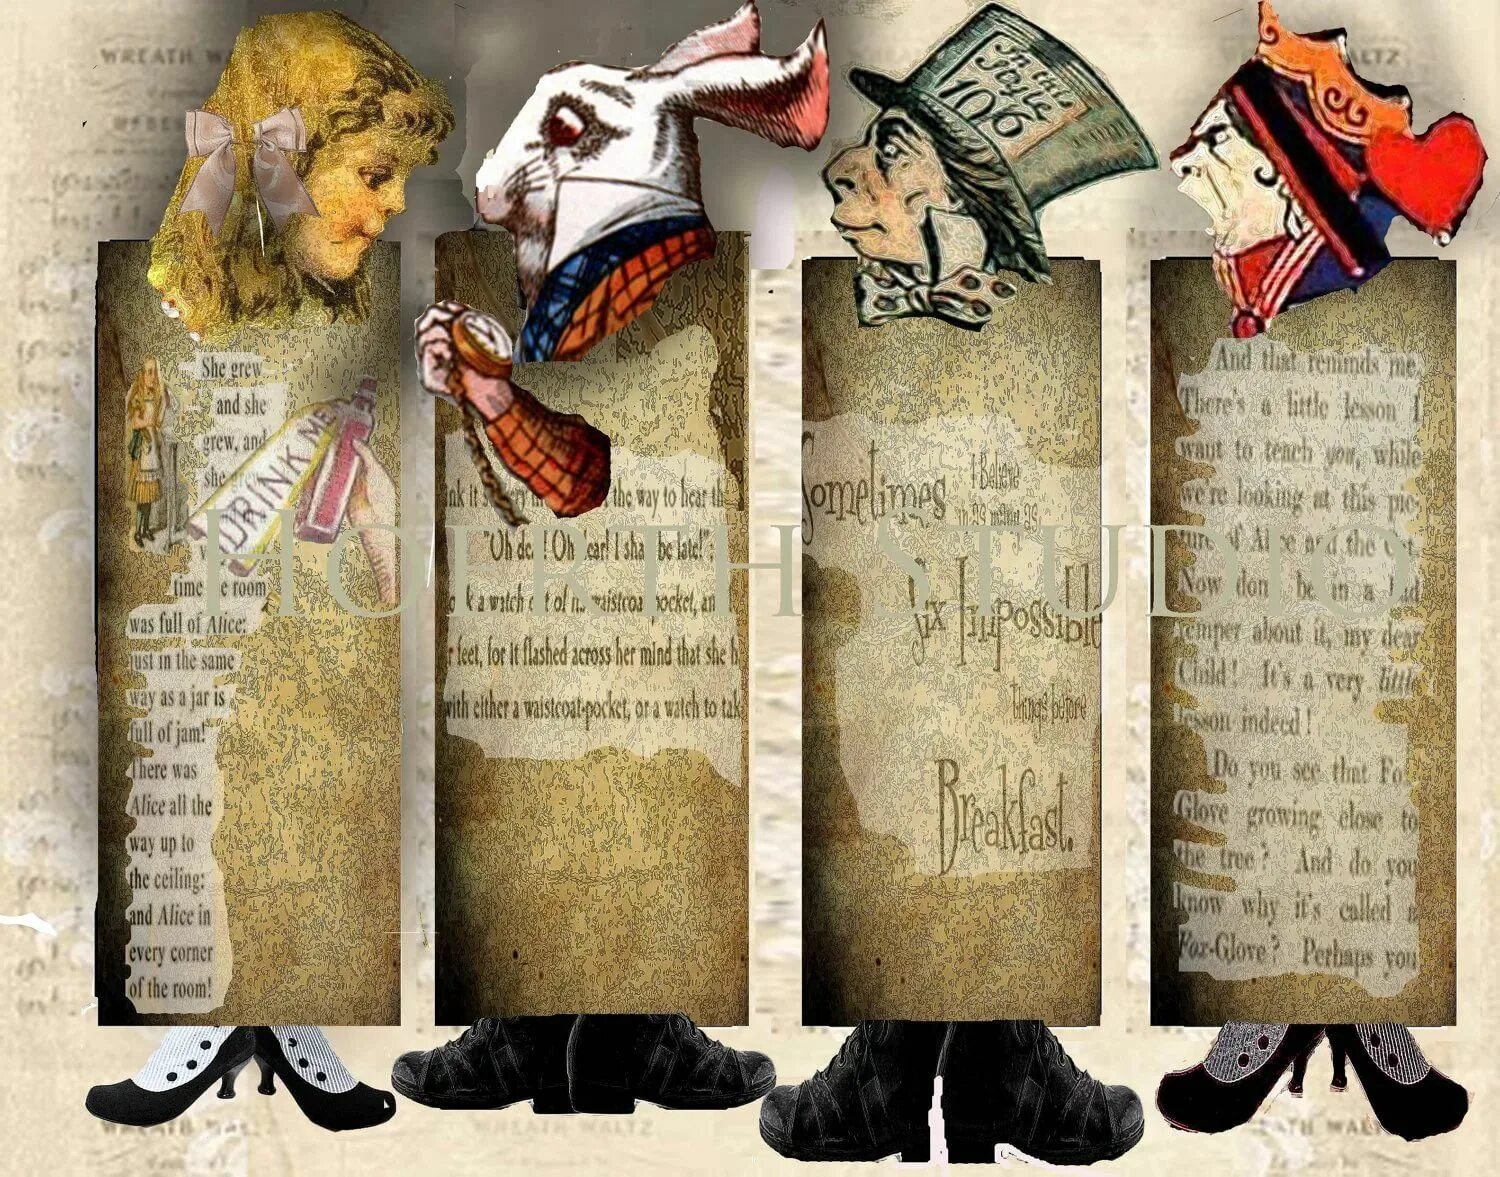 WREATH WALTZ
In this
Style
10/6
She grew
and she
grew, and
she grew
DRINK ME
time the room
was full of Alice:
just in the same
way as a jar is
full of jam!
There was
Alice all the
way up to
the ceiling:
and Alice in
every corner
of the room!
the way to hear th
"Oh dear! Oh dear! I shall be late!";
ok a watch out of its waistcoat-pocket, an
r feet, for it flashed across her mind that she h
with either a waistcoat-pocket, or a watch to tak
Sometimes
I Believe
in as many as
Six Impossible
things before
Breakfast.
And that reminds me.
There's a little lesson I
want to teach you, while
we're looking at this pic-
ture of Alice and the Cat.
Now don't be in a bad
temper about it, my dear
Child! It's a very little
lesson indeed!
Do you see that Fox-
Glove growing close to
the tree? And do you
know why it's called a
Fox-Glove? Perhaps you
HOERTH STUDIO
WREATH WALTZ